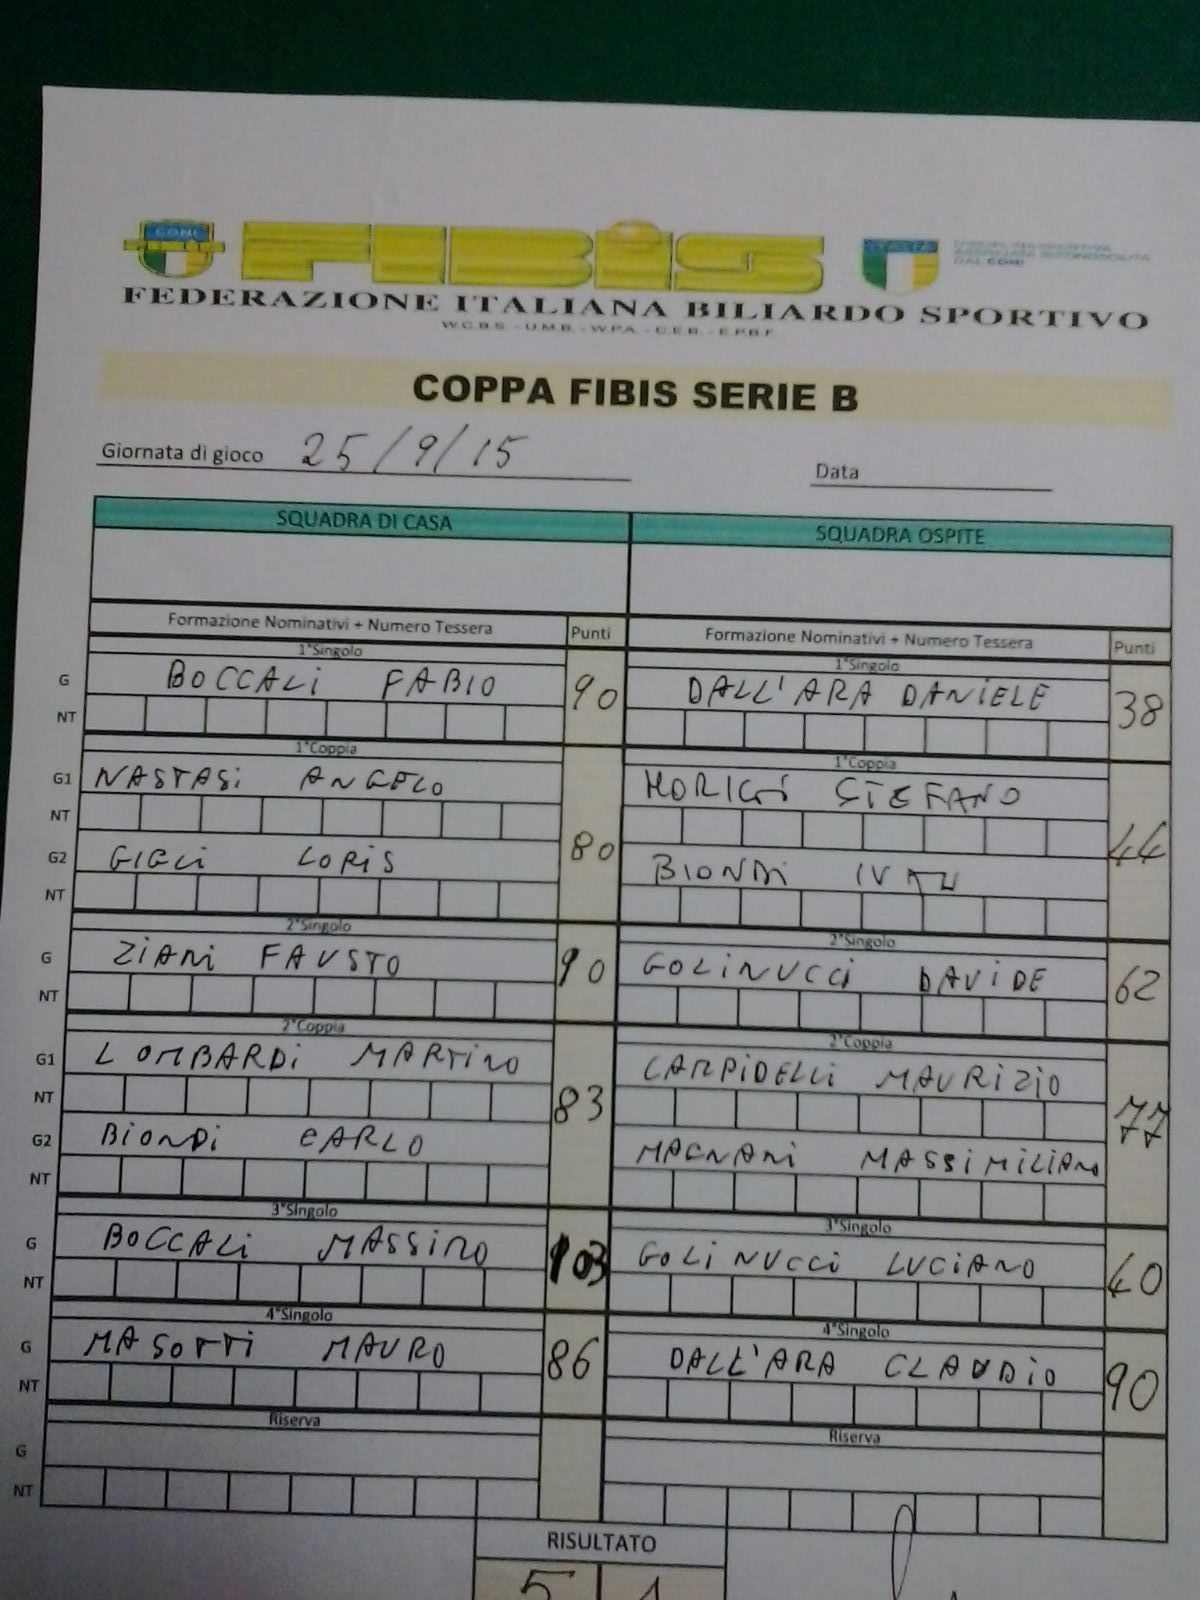 CONI
FIBIS
ITALIA
DISCIPLINA SPORTIVA
ASSOCIATA RICONOSCIUTA
DAL CONI
FEDERAZIONE ITALIANA BILIARDO SPORTIVO
W.C.B.S. - U.M.B. - W.P.A. - C.E.B. - E.P.B.F.
COPPA FIBIS SERIE B
Giornata di gioco 25/9/15 Data
SQUADRA DI CASA SQUADRA OSPITE
Formazione Nominativi + Numero Tessera Punti Formazione Nominativi + Numero Tessera Punti
1°Singolo 1°Singolo
G BOCCALI FABIO 90 DALL'ARA DANIELE 38
NT
1°Coppia 1°Coppia
G1 NASTASI ANGELO MORIGI STEFANO
NT 80 44
G2 GIGLI LORIS BIONDI IVAN
NT
2°Singolo 2°Singolo
G ZIANI FAUSTO 90 GOLINUCCI DAVIDE 62
NT
2°Coppia 2°Coppia
G1 LOMBARDI MARTINO CARPIDELLI MAURIZIO
NT 83 77
G2 BIONDI CARLO MAGNANI MASSIMILIANO
NT
3°Singolo 3°Singolo
G BOCCALI MASSIMO 103 GOLINUCCI LUCIANO 40
NT
4°Singolo 4°Singolo
G MASOTTI MAURO 86 DALL'ARA CLAUDIO 90
NT
Riserva Riserva
G
NT
RISULTATO
5 1